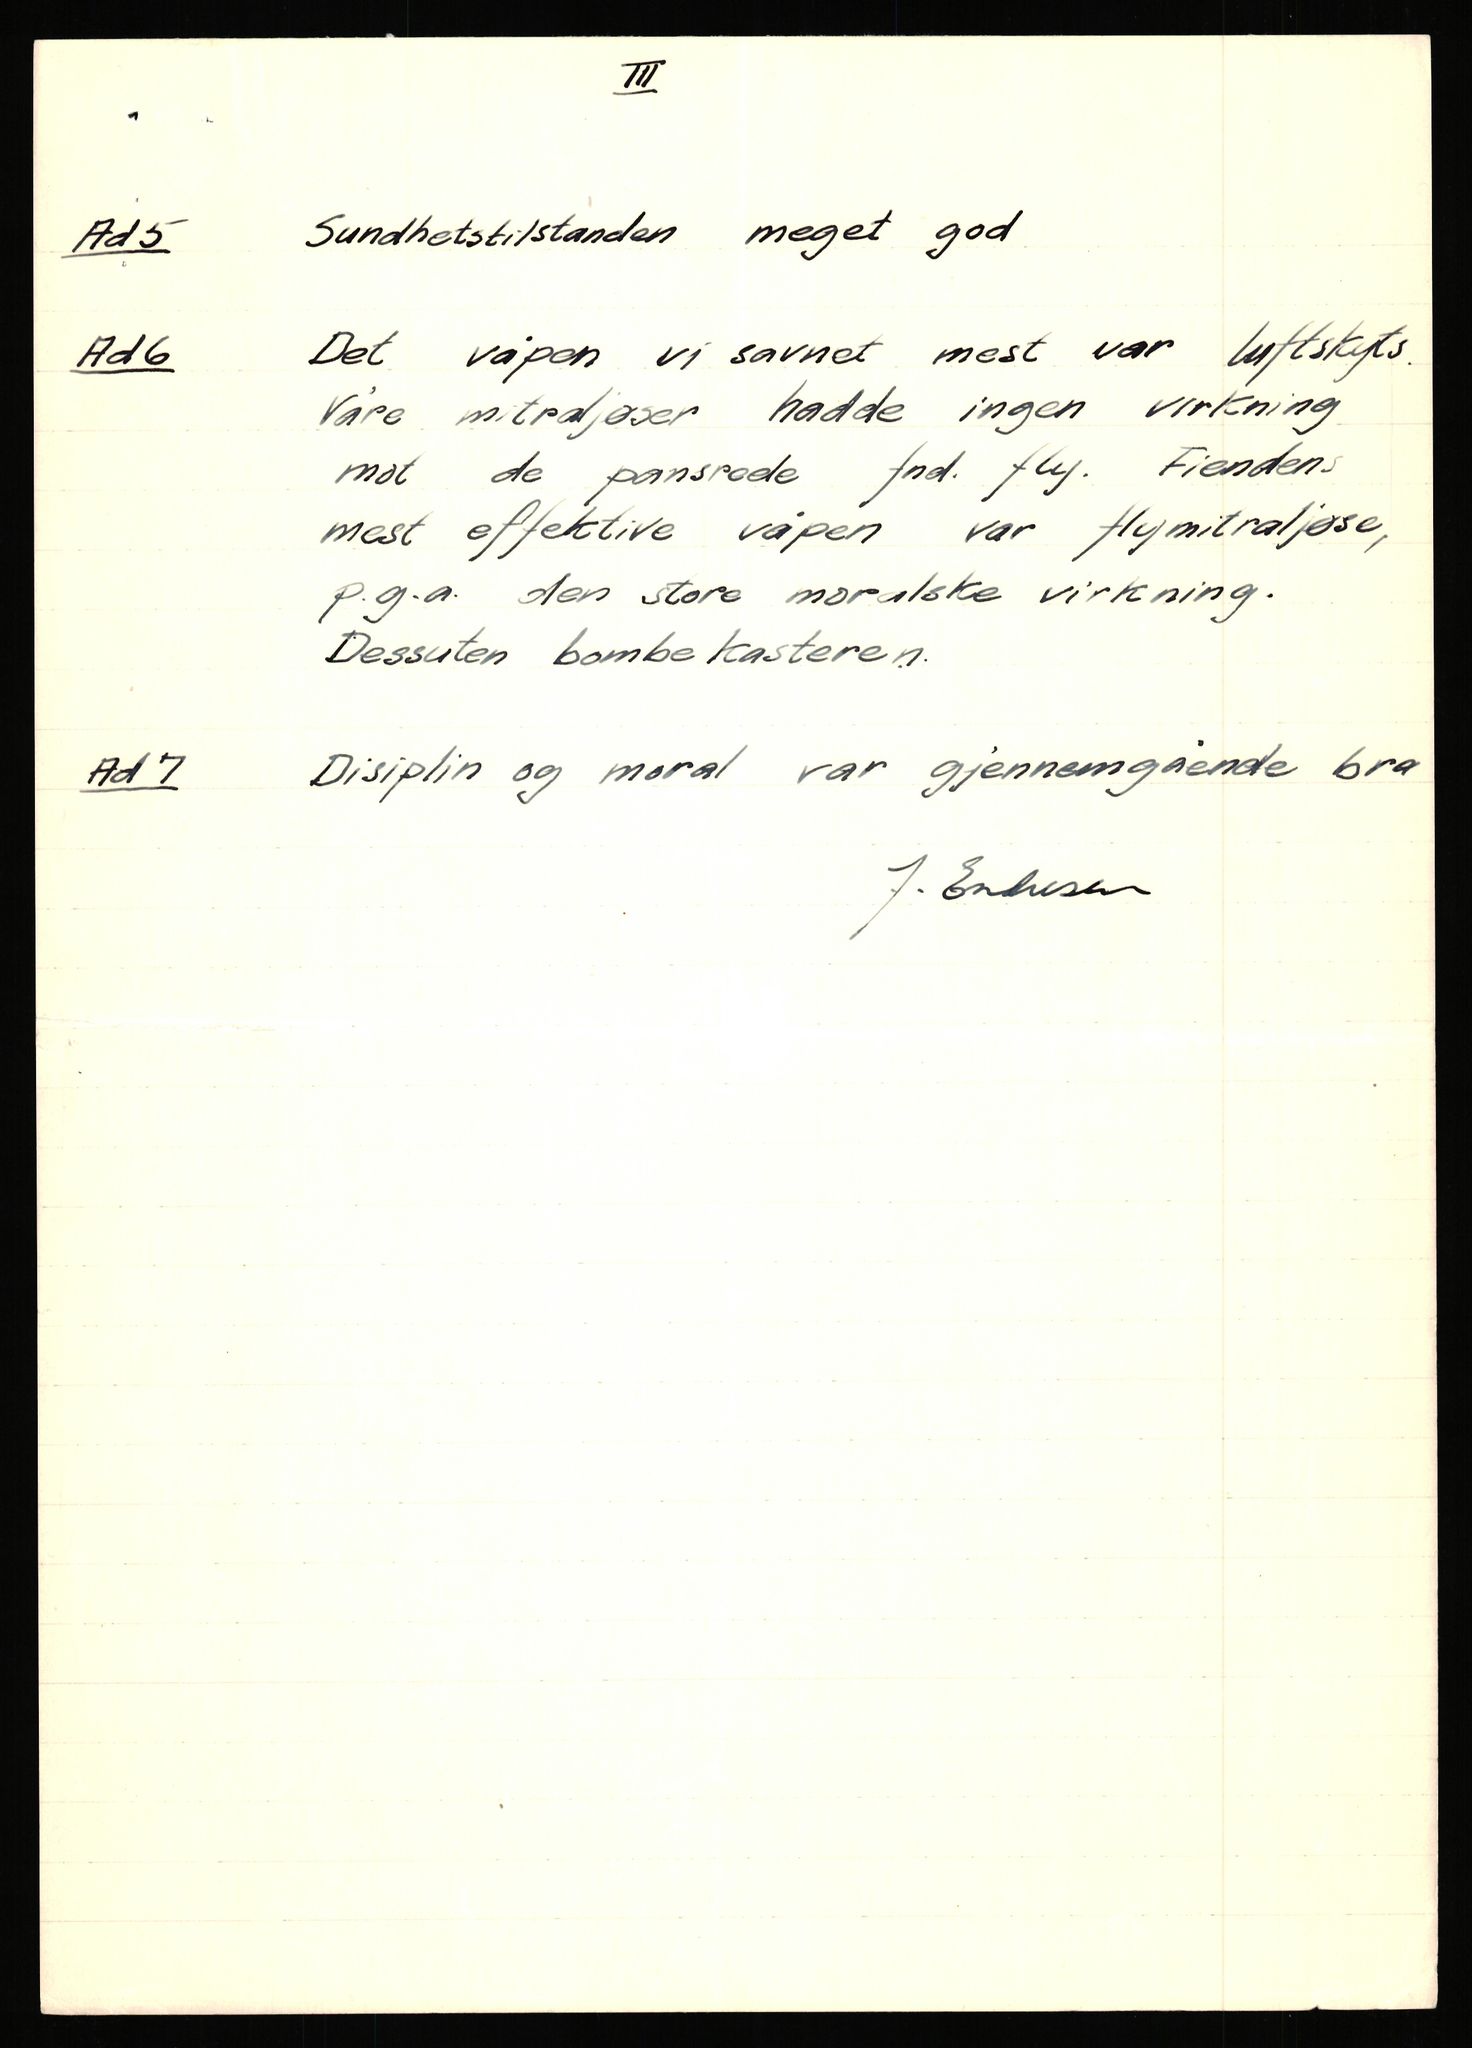 III
Ad 5 Sundhetstilstanden meget god
Ad 6 Det våpen vi savnet mest var luftskyts.
Våre mitraljøser hadde ingen virkning
mot de pansrede fnd. fly. Fiendens
mest effektive våpen var flymitraljøse,
p.g.a. den store moralske virkning.
Dessuten bombekasteren.
Ad 7 Disiplin og moral var gjennemgående bra
J.